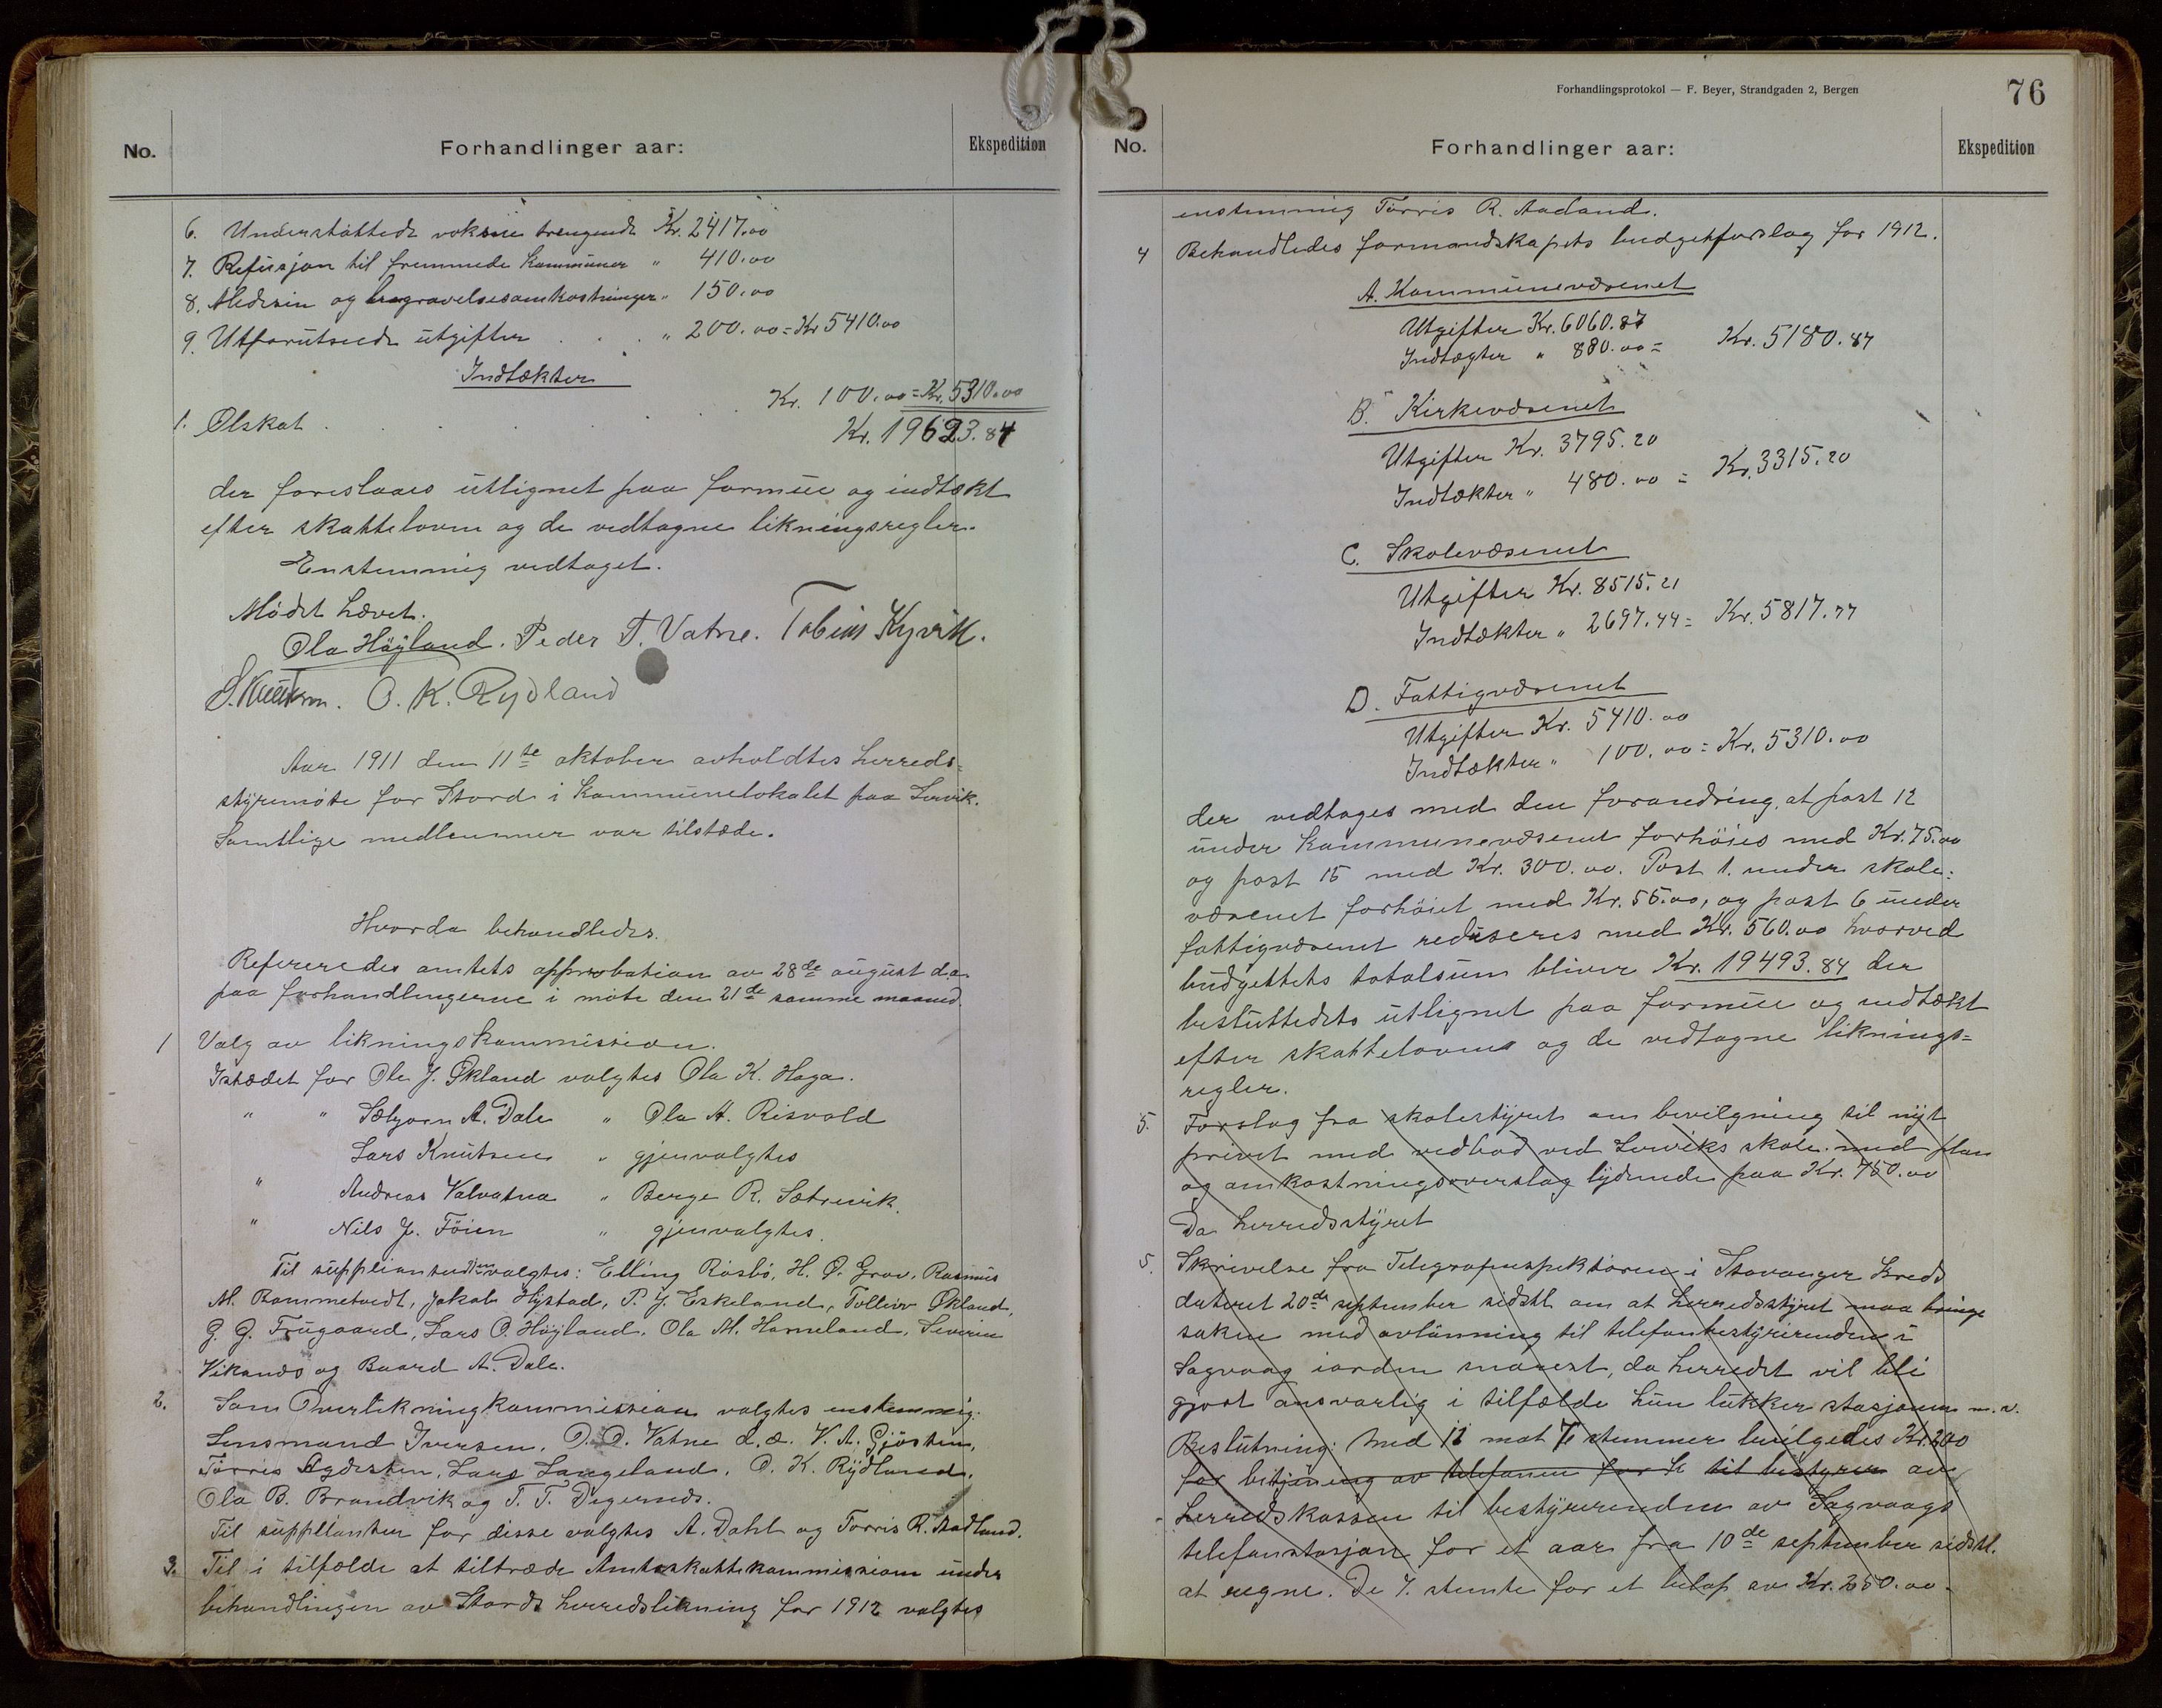 No. Forhandlinger aar: Ekspedition
6. Understøttede voksne trengende Kr. 2417.00
7. Refusjon til fremmede kommuner " 410.00
8. Medisin og begravelsesomkostninger " 150.00
9. Utforutseede utgifter . . . " 200.00 = Kr 5410.00
Indtækter
1. Ølskat . . . . . . Kr. 100.00 = Kr. 5310.00
Kr. 19623.84
der foreslaaes utlignet paa formue og indtækt
efter skatteloven og de vedtagne likningsregler.
Enstemmig vedtaget.
Mødet hævet.
Ola Høyland. Peder T. Vatne. Tobias Kyvik.
O. K. Rydland
Aar 1911 den 11te oktober avholdtes herreds=
styremøte for Stord i kommunelokalet paa Lervik.
Samtlige medlemmer var tilstæde.
Hvorda behandledes.
Refereredes amtets approbation av 28de august d.a.
paa forhandlingerne i møte den 21de samme maaned.
1 Valg av likningskommission.
Istædet for Ole J. Økland valgtes Ola K. Haga.
" " Sæbjørn A. Dale " Ola A. Risvold
Lars Knutsen " gjenvalgtes
" Andreas Valvatna " Berge R. Sætrevik.
" Nils J. Föien " gjenvalgtes.
Til supplianter valgtes: Elling Rosbö, H. O. Grov, Rasmus
M. Bommetvedt, Jakob Hystad, P. J. Eskeland, Tolleiv Økland,
G. G. Frugaard, Lars O. Høyland. Ola M. Horneland, Severin
Vikanes og Baard A. Dale.
2. Som Overlikningkommission valgtes enstemmig:
Lensmand Iversen, O. O. Vatne d.æ. V. A. Gjøsten,
Tørris Agdesten, Lars Langeland. O. K. Rydland,
Ola B. Brandvik og T. T. Digernes.
Til supplianter for disse valgtes A. Dahl og Tørris R. Aadland.
3. Til i tilfælde at tiltræde Amtsskattekommissionen under
behandlingen av Stords herredslikning for 1912 valgtes
Forhandlingsprotokol — F. Beyer, Strandgaden 2, Bergen
76
No. Forhandlinger aar: Ekspedition
enstemmig Tørris R. Aadland.
4 Behandledes formandskapets budgetforslag for 1912.
A. Kommunevæsenet
Utgifter Kr. 6060.87
Indtægter " 880.00 = Kr. 5180.87
B. Kirkevæsenet
Utgifter Kr. 3795.20
Indtækter " 480.00 = Kr. 3315.20
C. Skolevæsenet
Utgifter Kr. 8515.21
Indtækter " 2697.44 = Kr. 5817.77
D. Fattigvæsenet
Utgifter Kr. 5410.00
Indtækter " 100.00 = Kr. 5310.00
der vedtages med den forandring, at post 12
under kommunevæsenet forhöies med Kr. 75.00
og post 15 med Kr. 300.00. Post 1. under skole=
væsenet forhöiet med Kr. 55.00, og post 6 under
fattigvæsenet reduseres med Kr. 560.00 hvorved
budgettets totalsum bliver Kr. 19493.84 der
besluttedets utlignet paa formue og indtækt
efter skatteloven og de vedtagne liknings=
regler.
5. Forslag fra skolestyret om bevilgning til nyt
privet med vedbod ved Lerviks skole. med plan
og omkostningsoverslag lydende paa Kr. 750.00
Da herredsstyret
5. Skrivelse fra Telegrafinspektøren i Stavanger Kreds
dateret 20de september sidstl. om at herredsstyret maa bringe
saken med avlönning til telefonbestyrerinden i
Sagvaag iorden snarest, da herredet vil bli
gjort ansvarlig i tilfælde hun lukker stasjonen m.v.
Beslutning: Med 11 mot 7 stemmer bevilgedes Kr. 200
for betjening av telefonen for til bestyrer av
herredskassen til bestyrerinden av Sagvaags
telefonstasjon for et aar fra 10de september sidstl.
at regne. De 7. stemte for et belop av Kr. 250.00.